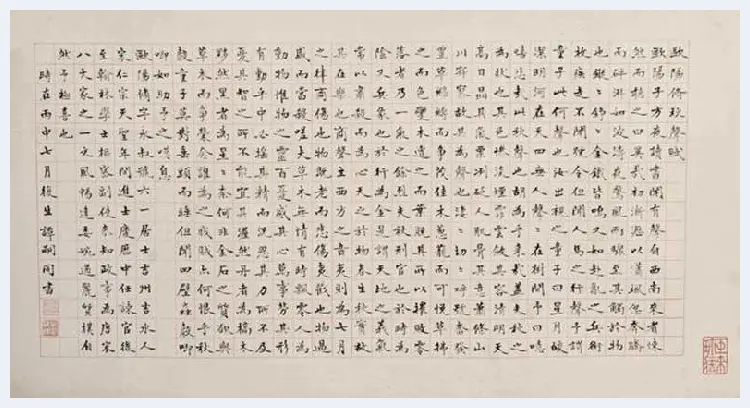 歐陽修秋聲賦
歐陽子方夜讀書聞有聲自西南來者悚
然而聽之曰異哉初淅瀝以蕭颯忽奔騰
而砰湃如波濤夜驚風雨驟至其觸於物
也鏦〻錚〻金鐵皆鳴又如赴敵之兵銜
枚疾走不聞號令但聞人馬之行聲予謂
童子此何聲也汝出視之童子曰星月皎
潔明河在天四無人聲〻在樹間予曰噫
嘻悲哉此秋聲也胡為乎來哉蓋夫秋之
為狀也其色慘淡煙霏雲斂其容清明天
高日晶其氣慄冽砭人肌骨其意蕭條山
川寂寥故其為聲也淒〻切〻呼號奮發
豐草綠縟而爭茂佳木蔥蘢而可悅草拂
之而色變木遭之而葉脫其所以摧敗零
落者乃一氣之餘烈夫秋刑官也於時為
陰又兵象也於行為金是謂天地之義氣
常以肅殺而為心天之於物春生秋實故
其在樂也商聲主西方之音夷則為七月
之律商傷也物既老而悲傷夷戮也物過
盛而當殺嗟夫草木無情有時飄零人為
動物惟物之靈百憂感其心萬事勞其形
有動乎中必搖其精而況思其力所不及
憂其智之所不能宜其渥然丹者為槁木
黟然黑者為星〻奈何非金石之質欲與
草木而爭榮念誰為之戕賊亦何恨乎秋
聲童子莫對垂頭而睡但聞四壁蟲聲唧
唧如助予之嘆息
歐陽修字永叔號六一居士吉州吉水人
宋仁宗天聖年間進士慶曆中任諫官後
至翰林學士樞密副使參知政事為唐宋
八大家之一文風暢達委婉遒麗質樸自
然予極喜也
時在雨中七月後生譚嗣同書